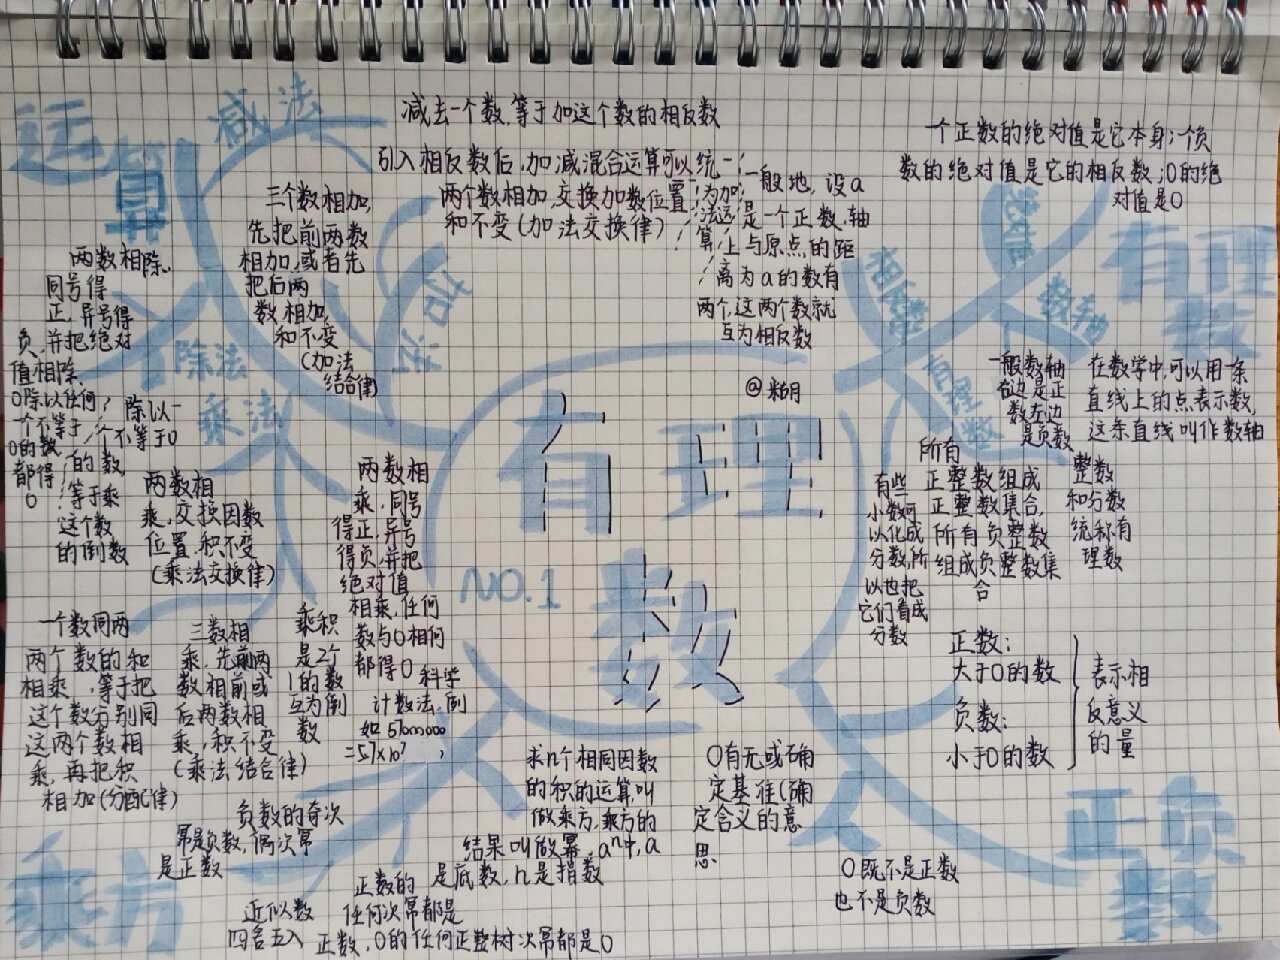 运算
减法
减去一个数,等于加这个数的相反数
引入相反数后,加减混合运算可以统一
为加
法运
算
三个数相加,
先把前两数
相加,或者先
把后两
数相加,
和不变
(加法
结合律)
两个数相加,交换加数位置
和不变(加法交换律)
一般地,设a
是一个正数,轴
上与原点的距
离为a的数有
两个,这两个数就
互为相反数
一个正数的绝对值是它本身;一个负
数的绝对值是它的相反数;0的绝
对值是0
有理
数
相反数
数轴
有理数
两数相除,
同号得
正,异号得
负,并把绝对
值相除,
0除以任何
一个不等于
0的数
都得
0
除法
除以一
个不等于0
的数,
等于乘
这个数
的倒数
乘法
两数相
乘,交换因数
位置,积不变
(乘法交换律)
两数相
乘,同号
得正,异号
得负,并把
绝对值
相乘,任何
数与0相何
都得0
有理
数
NO.1
@糊月
一般数轴
右边是正
数左边
是负数
在数学中,可以用一条
直线上的点表示数,
这条直线叫作数轴
有些
小数可
以化成
分数,所
以也把
它们看成
分数
所有
正整数组成
正整数集合,
所有负整数
组成负整数集
合
整数
和分数
统称有
理数
正数:
大于0的数
负数:
小于0的数
表示相
反意义
的量
一个数同两
两个数的和
相乘,等于把
这个数分别同
这两个数相
乘,再把积
相加(分配律)
三数相
乘,先前两
数相前或
后两数相
乘,积不变
(乘法结合律)
乘积
是2个
1的数
互为倒
数
科学
计数法,倒
如57000000
=5.7×10⁷
负数的奇次
幂是负数,偶次幂
是正数
乘方
近似数
四舍五入
正数的
任何次幂都是
正数,0的任何正整树次幂都是0
求n个相同因数
的积的运算,叫
做乘方,乘方的
结果叫做幂,aⁿ中,a
是底数,n是指数
0有无或确
定基准(确
定含义的意
思
0既不是正数
也不是负数
正负
数